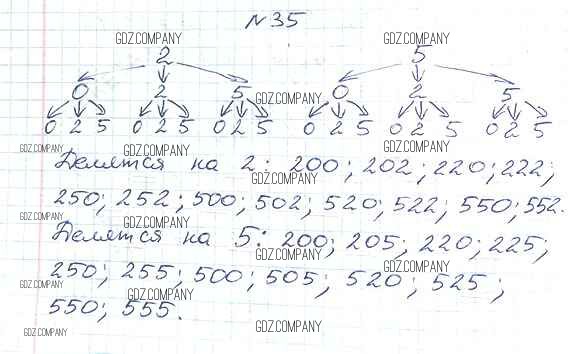 №35
GDZ.COMPANY GDZ.COMPANY
2 5
0 2 5 GDZ.COMPANY 0 2 5
0 2 5 0 2 5 0 2 5 0 2 5 0 2 5 0 2 5
GDZ.COMPANY GDZ.COMPANY GDZ.COMPANY
Делятся на 2: 200; 202; 220; 222;
GDZ.COMPANY
250; 252; 500; 502; 520; 522; 550; 552.
GDZ.COMPANY GDZ.COMPANY GDZ.COMPANY
Делятся на 5: 200; 205; 220; 225;
GDZ.COMPANY
250; 255; 500; 505; 520; 525;
GDZ.COMPANY GDZ.COMPANY GDZ.COMPANY
550; 555.
GDZ.COMPANY GDZ.COMPANY